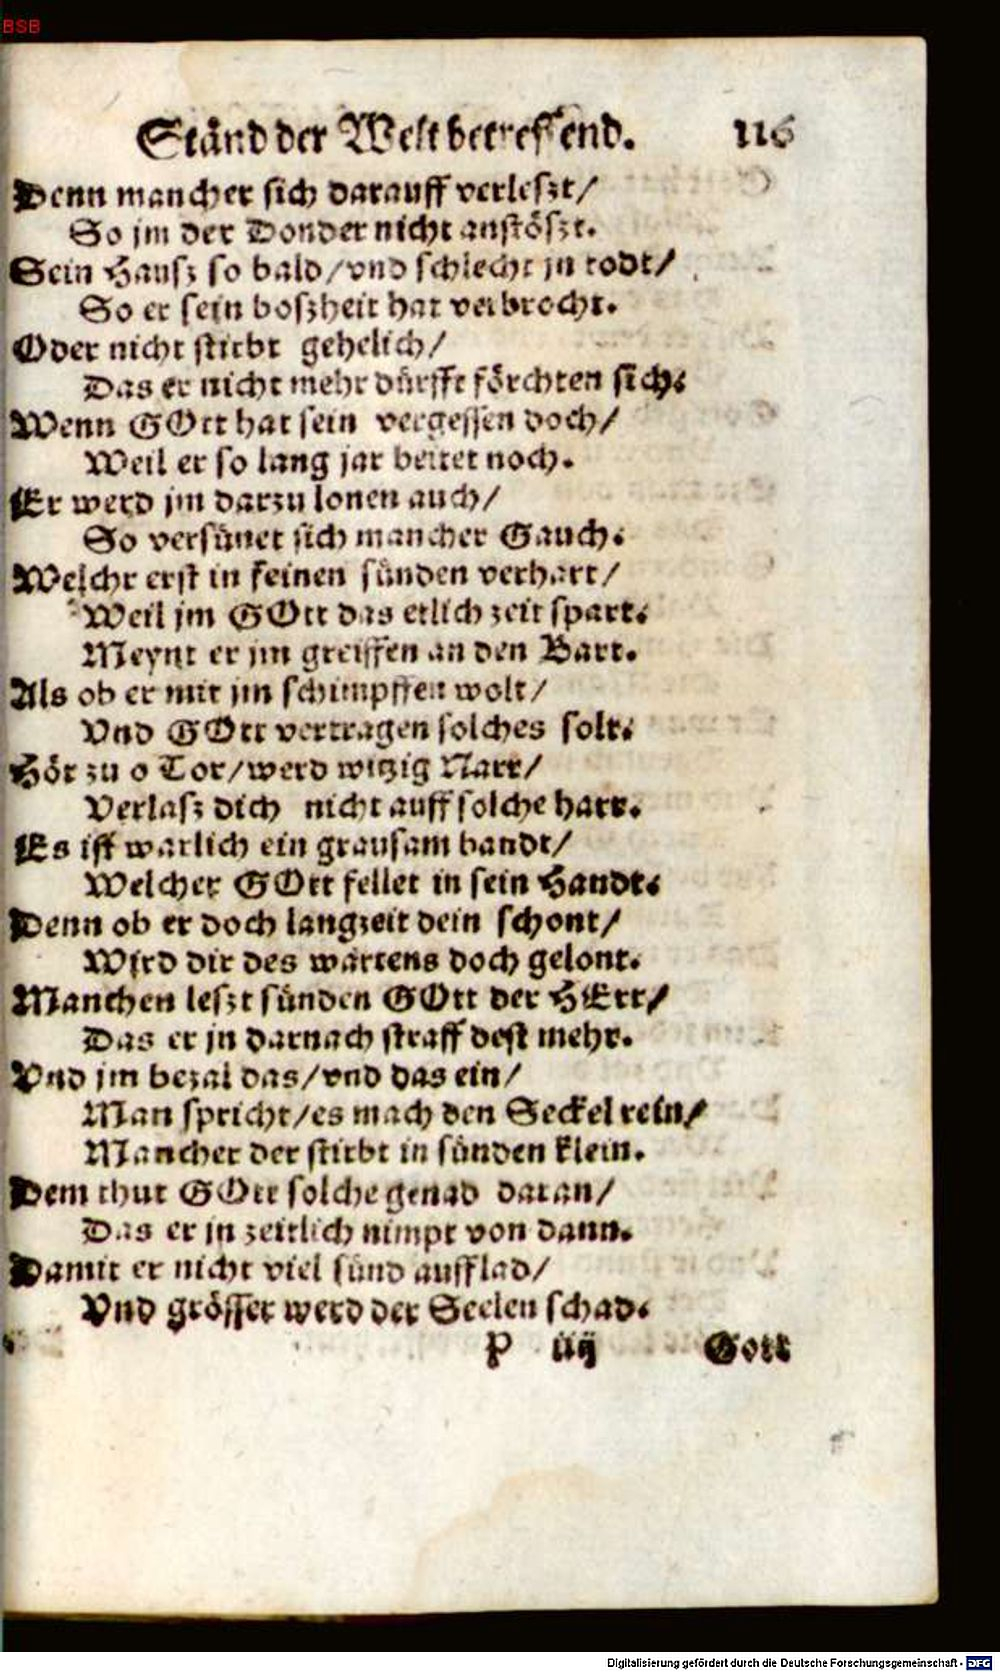 BSB
Ständ der Welt betreffend. 116
Denn mancher sich darauff verleszt/
So jm der Donder nicht anstöszt.
Sein Hausz so bald/vnd schlecht jn todt/
So er sein boszheit hat verbrocht.
Oder nicht stirbt gehelich/
Das er nicht mehr dürfft förchten sich.
Wenn GOtt hat sein vergessen doch/
Weil er so lang jar beitet noch.
Er werd jm darzu lonen auch/
So versünet sich mancher Gauch.
Welchr erst in seinen sünden verhart/
Weil jm GOtt das etlich zeit spart.
Meynt er jm greiffen an den Bart.
Als ob er mit jm schimpffen wolt/
Vnd GOtt vertragen solches solt.
Hör zu o Tor/werd witzig Narr/
Verlasz dich nicht auff solche harr.
Es ist warlich ein grausam bandt/
Welcher GOtt fellet in sein Handt.
Denn ob er doch langzeit dein schont/
Wjrd dir des wartens doch gelont.
Manchen leszt sünden GOtt der HErr/
Das er jn darnach straff dest mehr.
Vnd jm bezal das/vnd das ein/
Man spricht/es mach den Seckel rein/
Mancher der stirbt in sünden klein.
Dem thut GOtt solche genad daran/
Das er jn zeitlich nimpt von dann.
Damit er nicht viel sünd aufflad/
Vnd grösser werd der Seelen schad.
P iiij Gott
Digitalisierung gefördert durch die Deutsche Forschungsgemeinschaft - DFG